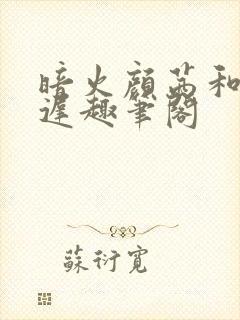 暗火顧茜和
遲趣筆閣
蘇衍寬